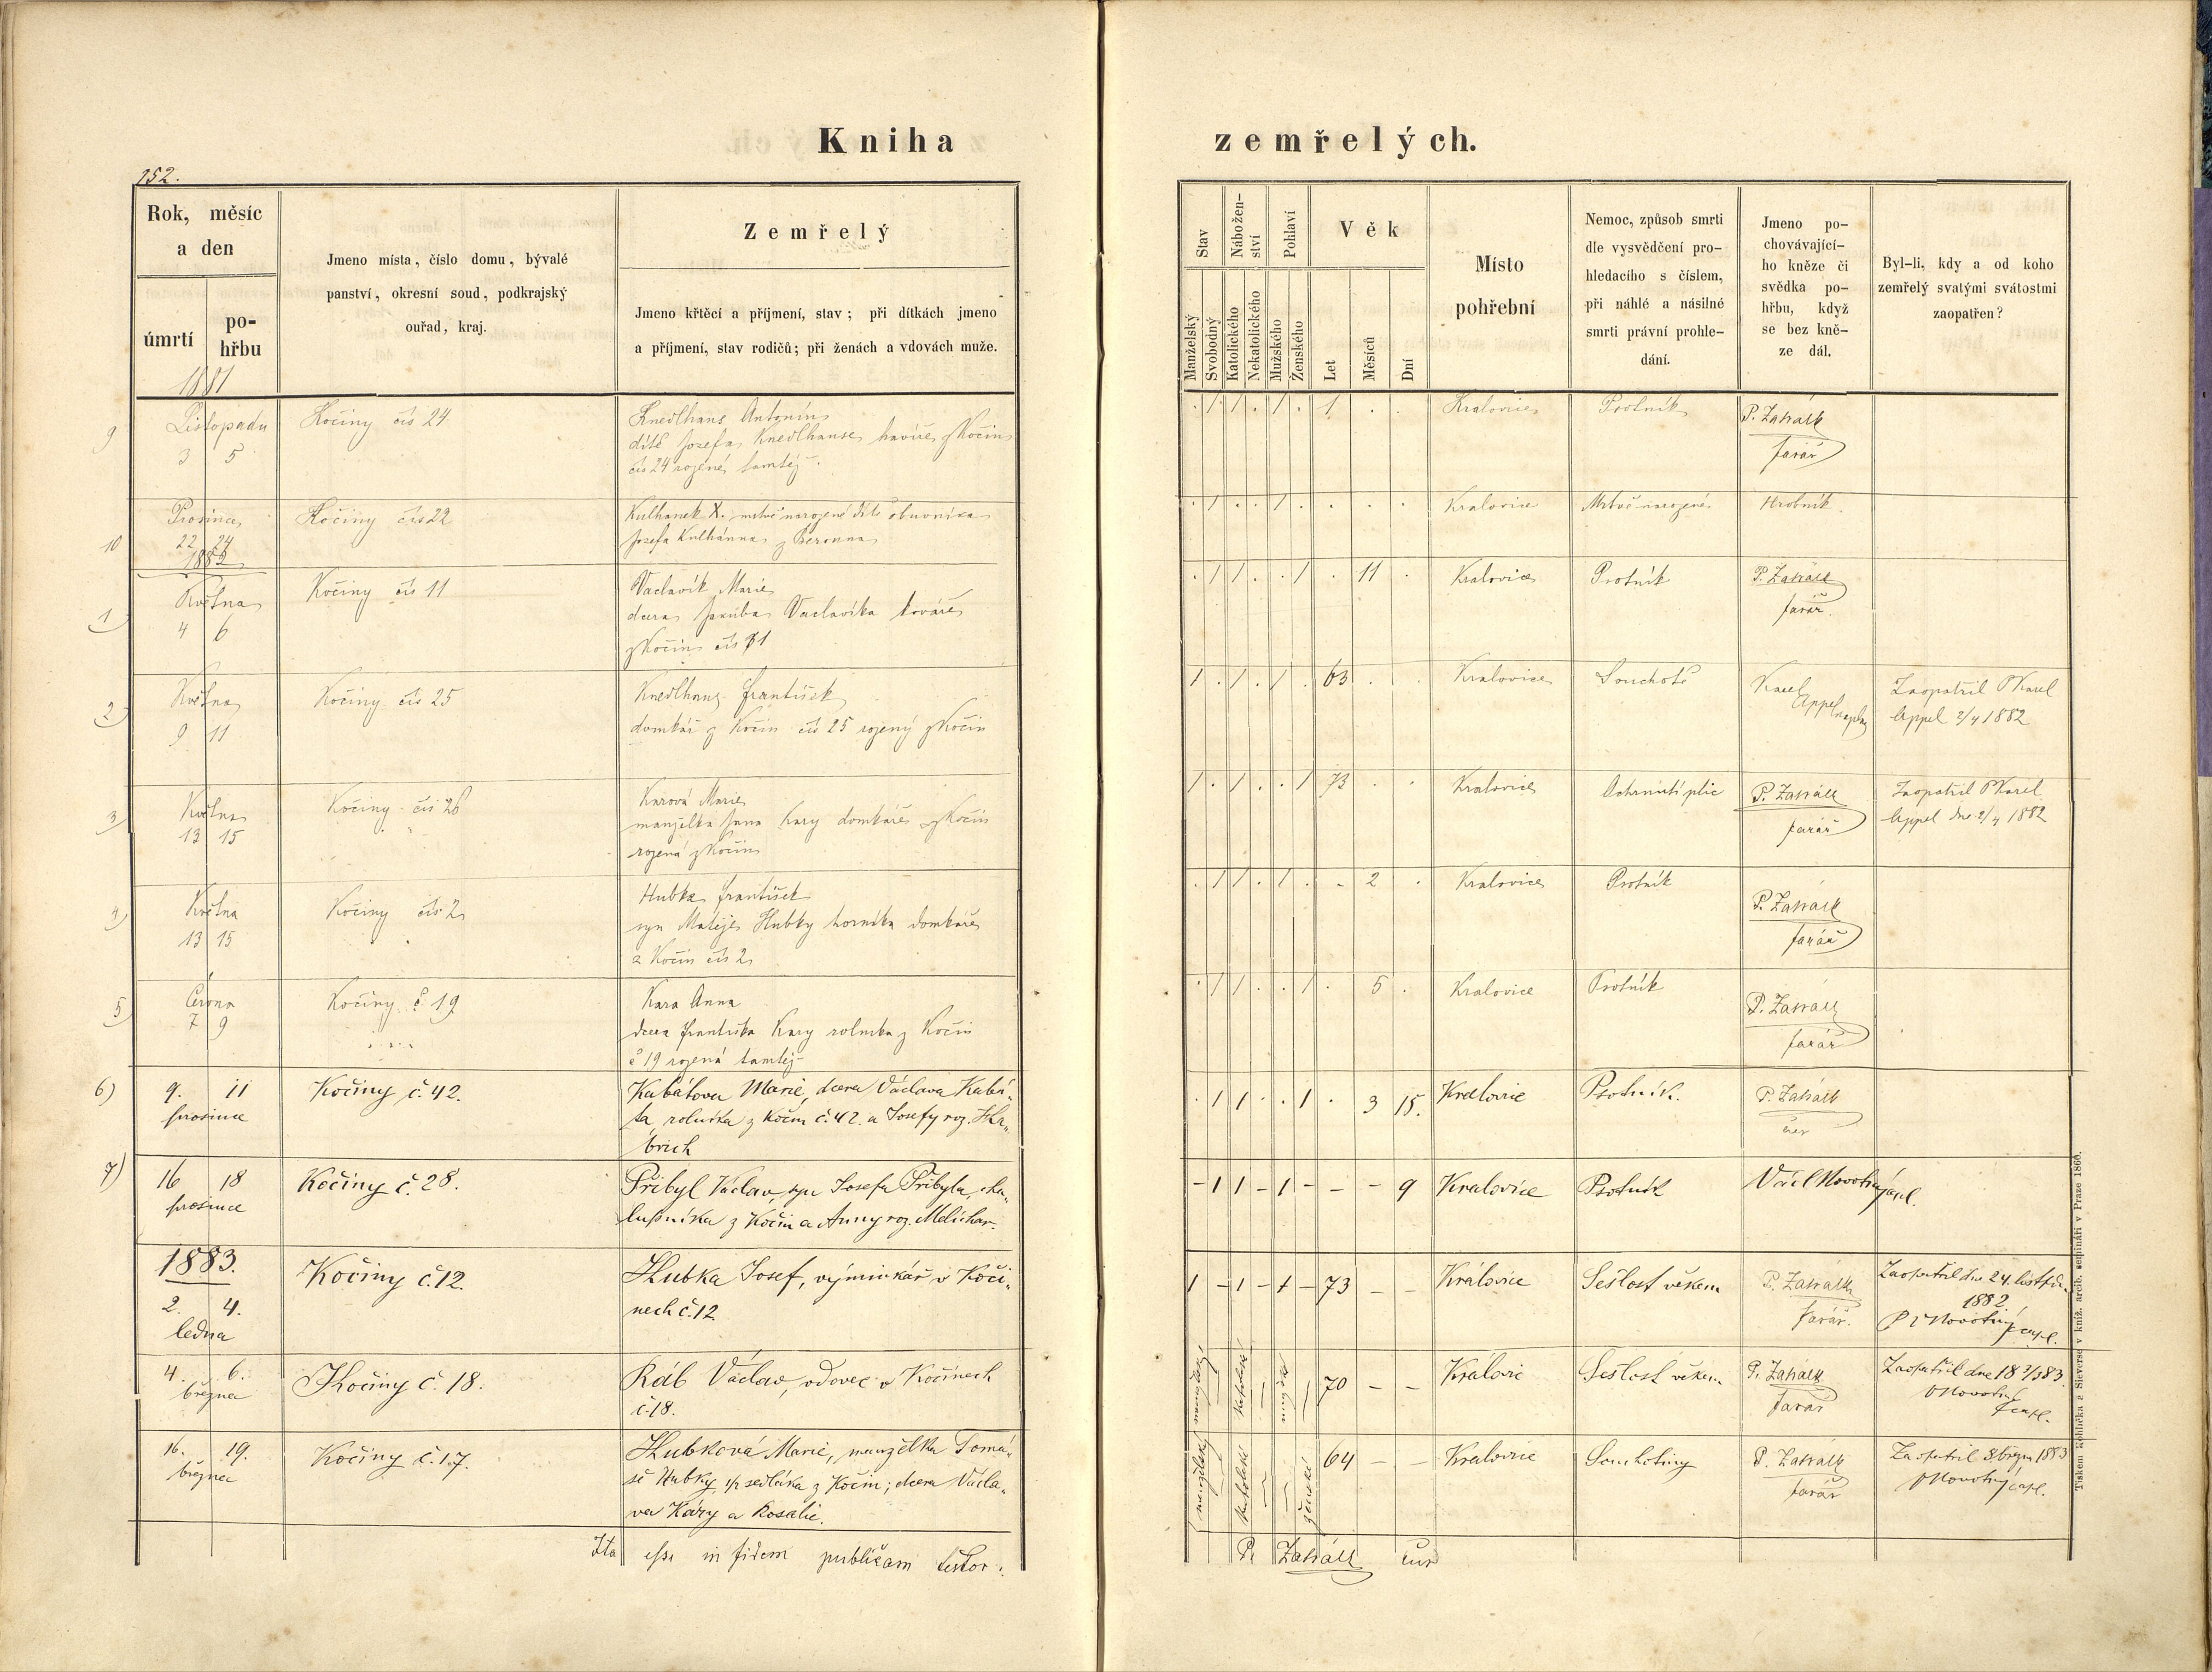 Kniha
zemřelých.
152.
Rok, měsíc
a den
úmrtí
po-
hřbu
Jmeno místa, číslo domu, bývalé
panství, okresní soud, podkrajský
ouřad, kraj.
Zemřelý
Jmeno křtěcí a příjmení, stav; při dítkách jmeno
a příjmení, stav rodičů; při ženách a vdovách muže.
Stav
Nábožen-
ství
Pohlaví
Věk
Manželský
Svobodný
Katolického
Nekatolického
Mužského
Ženského
Let
Měsíců
Dní
Místo
pohřební
Nemoc, způsob smrti
dle vysvědčení pro-
hledacího s číslem,
při náhlé a násilné
smrti právní prohle-
dání.
Jmeno po-
chovávající-
ho kněze či
svědka po-
hřbu, když
se bez kně-
ze dál.
Byl-li, kdy a od koho
zemřelý svatými svátostmi
zaopatřen?
1881
9 Listopadu
3 5
Kočiny čís 24
Knedlhans Antonín
dítě Josefa Knedlhanse havíře z Kočin
čís 24 rozené tamtéž.
. 1 1 . 1 . 1 . .
Kralovice
Psotník
P. Zahrálk
farář
10 Prosince
22 24
Kočiny čís 22
Kulhanek X. mrtvě narozené dítě obuvníka
Josefa Kulhánka z Berouna
. 1 . . 1 . . . .
Kralovice
Mrtvě narozené
Hrobník
1882
1) Května
4 6
Kočiny čís 11
Vaclavík Marie
dcera Jakuba Vaclavíka kováře
z Kočin čís 11
. 1 1 . . 1 . 11 .
Kralovice
Psotník
P. Zahrálk
farář.
2) Května
9 11
Kočiny čís 25
Knedlhans František
domkář z Kočin čís 25 rozený z Kočin
1 . 1 . 1 . 63 . .
Kralovice
Souchotě
Karel
Appel kaplan
Zaopatřil P Karel
Appel 2/4 1882
3) Května
13 15
Kočiny čís 26
Karová Marie
manželka Jana Kary domkáře z Kočin
rozená z Kočin
1 . 1 . . 1 73 . .
Kralovice
Ochrnutí plic
P. Zahrálk
farář
Zaopatřil P Karel
Appel dne 2/4 1882
4) Května
13 15
Kočiny čís 2
Hubka František
syn Matěje Hubky horníka domkáře
z Kočin čís 2
. 1 1 . 1 . . 2 .
Kralovice
Psotník
P. Zahrálk
farář
5) Června
7 9
Kočiny č 19
Kara Anna
dcera Františka Kary rolníka z Kočin
č 19 rozená tamtéž
. 1 1 . . 1 . 5 .
Kralovice
Psotník
P. Zahrálk
farář
6) 9. 11
prosince
Kočiny č. 42.
Kabátova Marie, dcera Václava Kabá-
ta, rolníka z Kočin č. 42. a Josefy roz.
brich
. 1 1 . . 1 . 3 15.
Kralovice
Psotník.
P. Zahrálk
7) 16 18
prosince
Kočiny č. 28.
Přibyl Václav, syn Josefa Přibyla, cha-
lupníka z Kočin a Anny roz. Melichar.
- 1 1 - 1 - - - 9
Kralovice
Psotník
Václ Novotný
1883.
2. 4.
ledna
Kočiny č. 12.
Hubka Josef, výminkář v Koči-
nech č. 12.
1 - 1 - 1 - 73 - -
Králowice
Sešlost věkem
P. Zahrálk
farář.
Zaopatřil dne 24. listop.
1882.
P V Novotný capl.
4. 6.
března
Kočiny č. 18.
Ráb Václav, vdovec v Kočinech
č. 18.
manželský katolické mužské
70 - -
Králowic
Sešlost věkem
P. Zahrálk
farář
Zaopatřil dne 18 2/3 83.
Novotný
capl.
16. 19.
března
Kočiny č. 17.
Hubková Marie, manželka Tomá-
še Hubky, 1/2 sedláka z Kočin; dcera Václa-
va Káry a Rosalie.
manželský katolické ženské
64 - -
Kralowice
Souchotiny
P. Zahrálk
farář
Zaopatřil 8. březn 1883
Novotný capl.
Ita esse in fidem publicam testor:
P. Zahrálk cur
Tiskem Rohlíčka a Sieverse v kníž. arcib. semináři v Praze 1860.